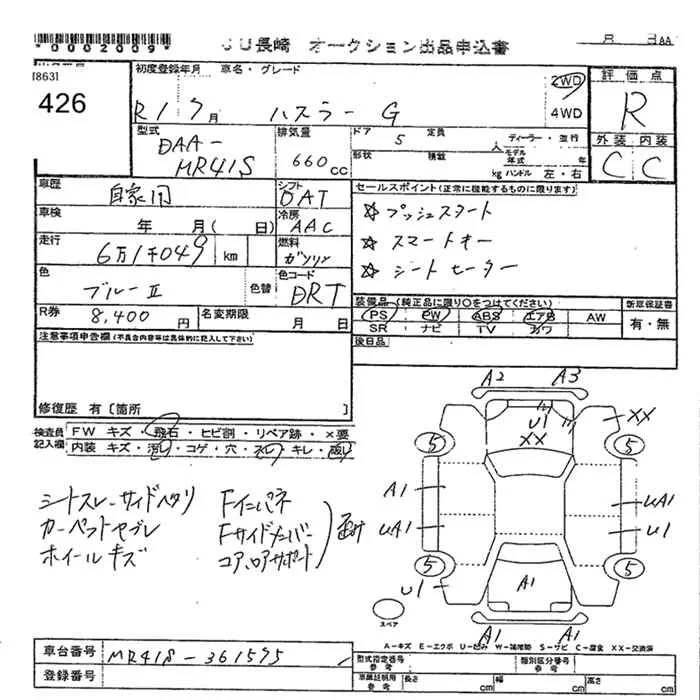 *0002009*
JU長崎 オークション出品申込書
月 日 AA
[863]
426
初度登録年月 車名・グレード
R1 7月 ハスラー G
2WD
4WD
評価点
R
外装 内装
C C
型式
DAA-
MR41S
排気量
660cc
ドア 5 定員 人
ディーラー・並行
モデル年式 年
形状 積載 kg ハンドル 左・右
車歴 自家用
シフト DAT
車検 年 月( 日)
冷房 AAC
走行 6万1千049 km
燃料 ガソリン
色 ブルーⅡ 色替
色コード DRT
R券 8,400円
名変期限 月 日
セールスポイント(正常に機能するものに限ります)
☆ プッシュスタート
☆ スマートキー
☆ シートヒーター
装備品(純正品に限り○をつけてください)
新車保証書
PS PW ABS エアB AW
SR ナビ TV カワ
有・無
後日品
注意事項申告欄(不具合内容等は具体的に記入して下さい)
修復歴 有[箇所 ]
検査員記入欄
FW キズ・飛石・ヒビ割・リペア跡・×要
内装 キズ・汚レ・コゲ・穴・スレ・キレ・破レ
シートスレ-サイドヘタリ
カーペットヤブレ
ホイールキズ
Fインパネ
Fサイドメンバー
コア、ロアサポート
A2 A3
U1
XX
XX
5 5
A1
UA1
UA1
U1
5 5
U1
A1
A1 A1
スペア
A-キズ E-エクボ U-凹み W-補修跡 S-サビ C-腐食 XX-交換済
車台番号 MR41S-361595
登録番号
型式指定番号 参考
類別区分番号 参考
車庫証明用 参考
長さ cm 幅 cm 高さ cm